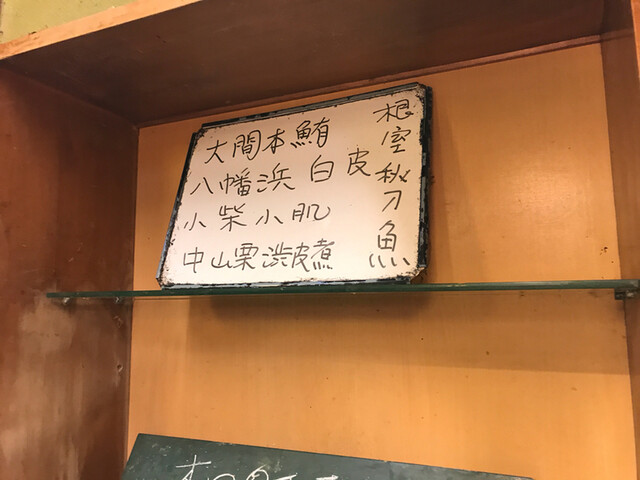 根室秋刀魚
大間本鮪
八幡浜白皮
小柴小肌
中山栗渋皮煮